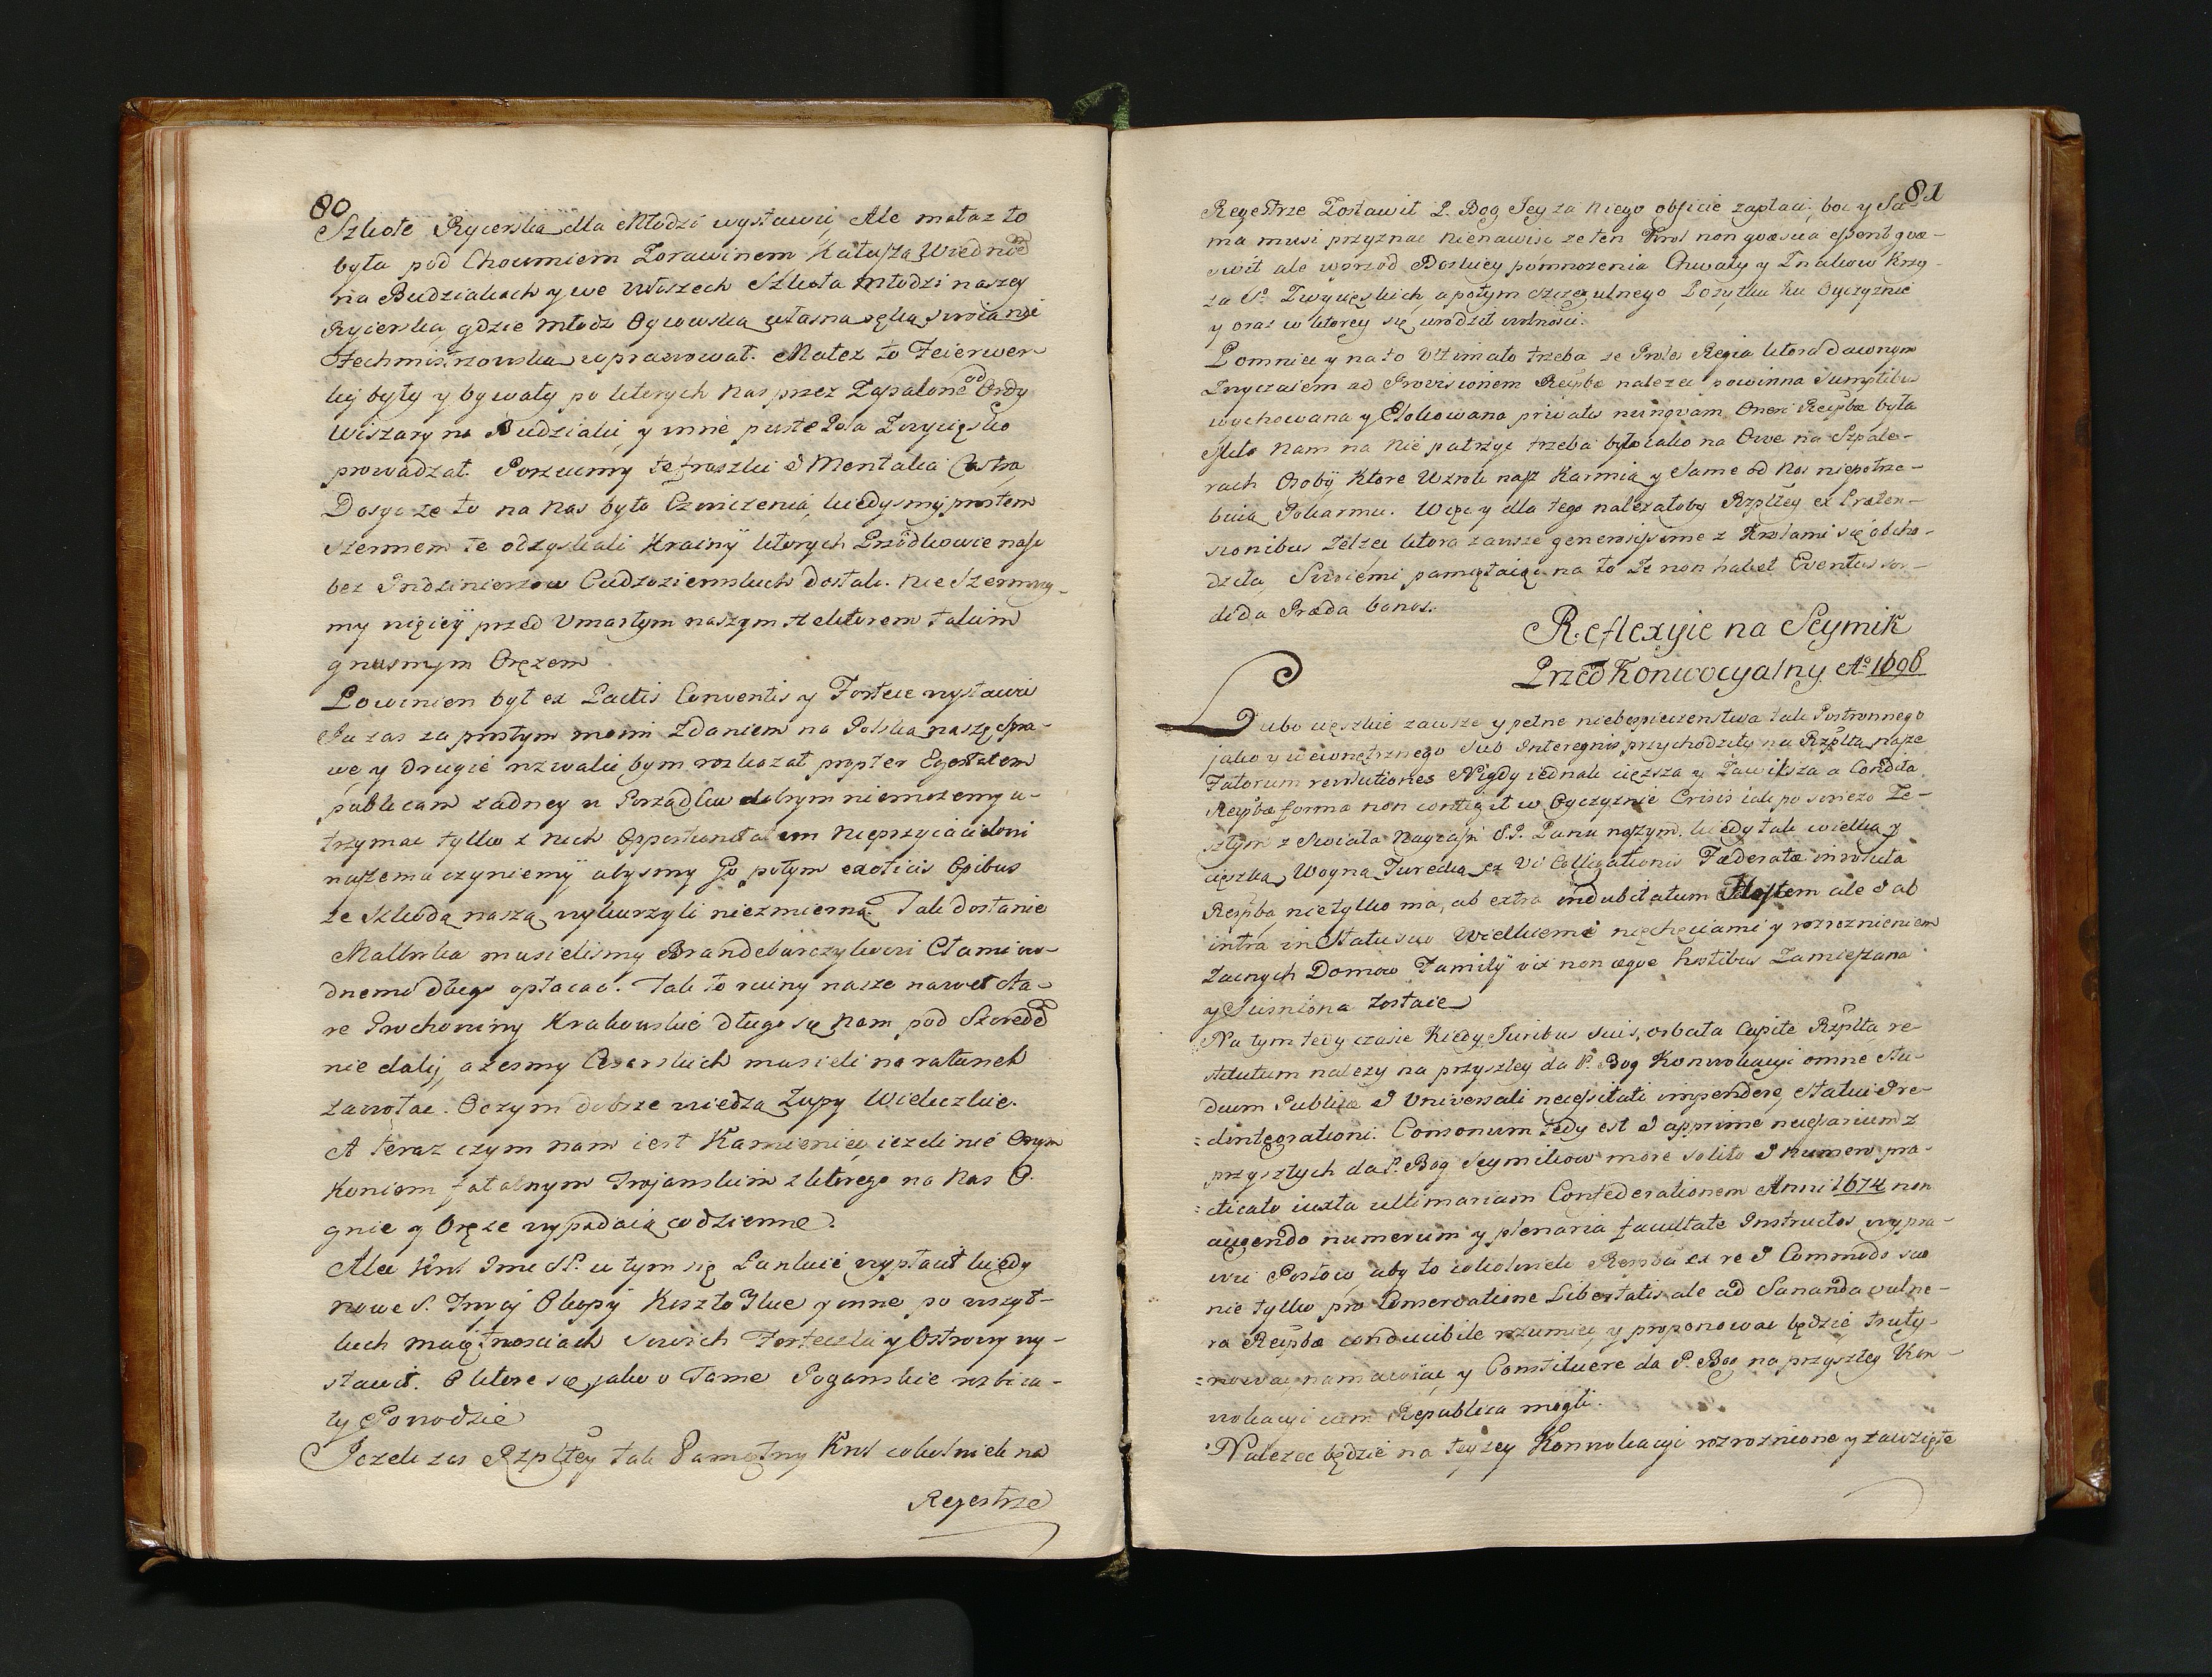 80
Szkołę Rycerska dla Młodzi wystawić, Ale małaz to
była pod Chocimiem Zorawinem Kałuszą Wiedniē
na Budziakach y we Włoszech Szkoła Młodzi naszey
Rycerska, gdzie Młodz Oycowska własna ręka swoia nie
Fechmistrzowska wyprawował. Małez to Feierwer
ki były y bywały po ktorych nas przez Zapalone od Ordy
Wiszary na Budziaki y inne puste Pola Zwycięsko
prowadzał. Porzucmy te fraszki & Mentalia Castra,
Dosyc ze to na nas było Czwiczenia, kiedysmy prostem
szermem te odzyskali Krainÿ ktorych Przodkowie nasi
bez Indzinierow Cudzoziemskich dostali. Nie Szermuy-
my więcÿ przed Umarłym naszym Hektorem takim
gnusnym Oręzem
Powinien był ex Pactis Conventis y Fortece wystawić
Ja zas za prostym moim Zdaniem na Polska naszę spra-
wę y drugie rozwalić bym rozkazał propter Egestatem
publicam zadney w Porządku dobrym niemozemy u-
trzymac tylko z nich Opportunitatem Nieprzyiacielowi
naszemu czyniemÿ abysmy Go potym exoticis Opibus
ze szkodą naszą wykurzyli niezmierną. Tak dostanie
Malborka musielismy Brandeburczykowi Cłami wo-
dnemi długo opłacac. Tak to ruiny nasze nawet sta-
re Prochowiny Krakowskie długo się nam pod Szwedē
nie dalÿ, azesmy Cesarskich musieli na ratunek
zawołac. O czym dobrze wiedzą Zupy Wieliczkie.
A teraz czym nam iest Kamieniec, iezeli nie Onym
koniem fatalnym Trojanskim z ktorego na nas O-
gnie y Oręze wypadaią codzienne.
Ale Krol Jmć SP. w tym się Łaskuie wypłacił kiedy
nowe S. Troycÿ Okopÿ Kosztoklue y inne po wszyt-
kich maiętnosciach swoich Forteczki y Ostrowy wy-
stawił. O ktore się jako o Tamę Poganskie rozbiia-
ły Powodzie
Jezeli zas Rzpltey tak Pamętny Krol cokolwiek na
Regestrze
81
Regestrze Zostawił P. Bog Jey za niego obficie zapłaci, boc y Sa-
ma musi przyznac nienawisc ze ten Krol non quæ sua essent quæ-
swił ale wprzod Boskiey pomnozenia Chwały y Znakow Krzy-
za So. Zwycięskich, a potym szczegulnego Pozytku ku Oyczyznie
y oraz w ktorey się urodził wolnosci.
Pomniec y na to Ultimato trzeba ze Proles Regia ktora dawnym
Zwyczaiem ad Provisionem Reipbæ nalezec powinna Sumptibus
wychowana y Elokowana privatis nunquam Oneri Reipbæ była
Miło nam na nie patrzyc trzeba było iako na Owe na Szpale-
rach Osobÿ ktore Wzrok nasz karmią y same od nas niepotrze-
buią Pokarmu. Więc y dla tego nalezałoby Rzpltey ex Præten-
sionibus Zelzec ktora zawsze generosissime z Krolami się obcho-
dziła, Swoiemi pamiętaiąc na to Ze non habet Eventus sor-
dida Præda bonos.
Reflexyie na Seymik
Przed Konwocyalny Ao 1696
Lubo cięszkie zawsze y pełne niebespieczenstwa tak Postronnego
jako y wewnętrznego sub Interegnis przychodziły na Rzpltą nasze
Fatorum revolutiones Nigdy iednak cięzsza y Zawilsza a Condita
Reipbæ forma non contigit w Oyczyznie Crisis iak po swiezo Ze-
szłym z Swiata Nayiasn. S.P. Panu naszym. kiedy tak wielką y
cięszką Woyną Turecką ex Vi Colligationis Fæderatæ involuta
Respba nie tylko ma, ab extra indubitatum Hostem ale & ab
intra in Statu suo Wielkiemi niechęciami y rozroznieniem
Zacnych Domow Familÿ vix non æque hostibus Zamieszana
y Scisniona Zostaie
Na tym tedy czasie Kiedy Juribus suis, orbata Capite Rzplta re-
stitutum nalezy na przyszley da P. Bog Konwokacyi omne stu-
dium Publicæ & Universali necessitati impendere, statui & re-
=dintegrationi. Consonum tedy est & apprime necessarium z
przyszłych da P. Bog Seymikow more solito & numero pra-
=cticato iuxta ultimariam Confederationem Anni 1674 non
augendo numerum y plenaria facultate Instructos wypra-
wic Posłow, aby to cokolwiek Respba ex re & Commodo suo
nie tylko pro Conservatione Libertatis ale ad Sananda vulne-
ra Reipbæ conducibile rozumiec y proponowac będzie, trutÿ-
=nowac, namawiac, y Constituere da P. Bog na przyszłey Kon-
wokacyi cum Republica mogli.
Nalezec będzie na teyzey Konwokacyi rozroznione y zawzięte